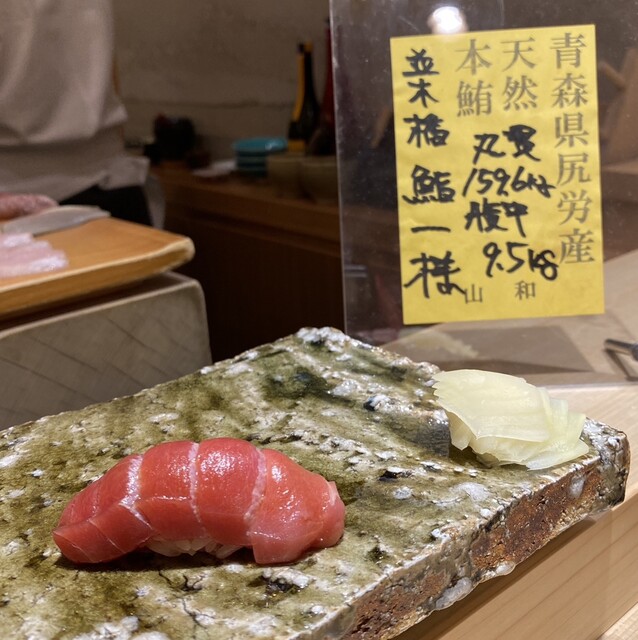 青森県尻労産
天然
本鮪
丸貫
159.6kg
腹中
9.5kg
並木橋
鮨一様
山和